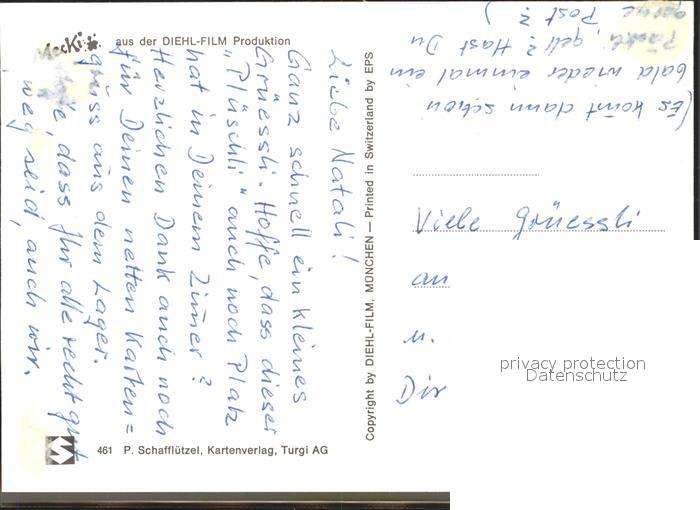 Mecki aus der DIEHL-FILM Produktion
Liebe Natali!
Ganz schnell ein kleines
Grüessli. Hoffe, dass dieser
"Plüschli" auch noch Platz
hat in Deinem Zimer?
Herzlichen Dank auch noch
für Deinen netten Karten=
gruss aus dem Lager.
dass Ihr alle recht gut
weg seid, auch wir.
Copyright by DIEHL-FILM, MÜNCHEN — Printed in Switzerland by EPS
461 P. Schafflützel, Kartenverlag, Turgi AG
Viele Grüessli
an
u.
Dir
(Es komt dann schon
bald wieder einmal ein
Päckli, gell? Hast Du
Post?)
privacy protection
Datenschutz